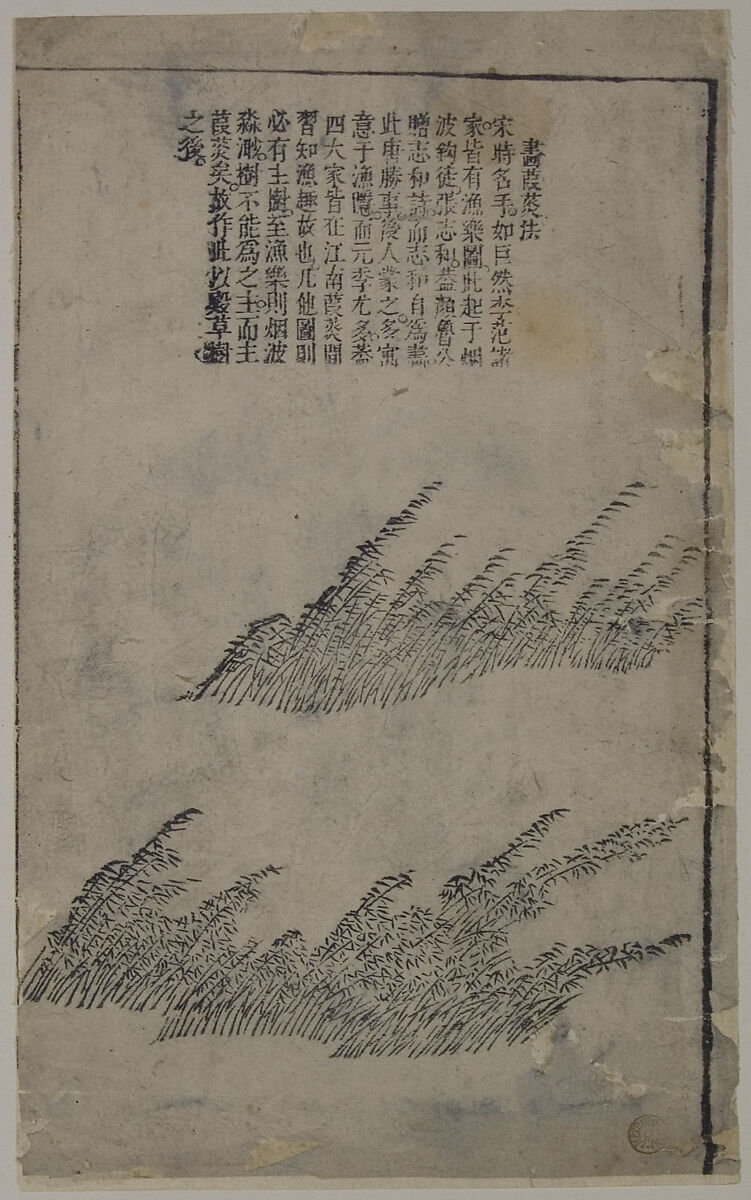 畫葭菼法
宋時名手。如巨然李范諸
家。皆有漁樂圖。此起于烟
波釣徒。張志和。葢顏魯公
贈志和詩。而志和自為畫。
此唐勝事。後人蒙之。多寓
意于漁隱。而元季尤多。葢
四大家皆在江南葭菼間
習知漁趣故也。凡他圖則
必有主樹。至漁樂則烟波
淼瀰。樹不能為之主。而主
葭菼矣。故作此以殿草樹
之後。